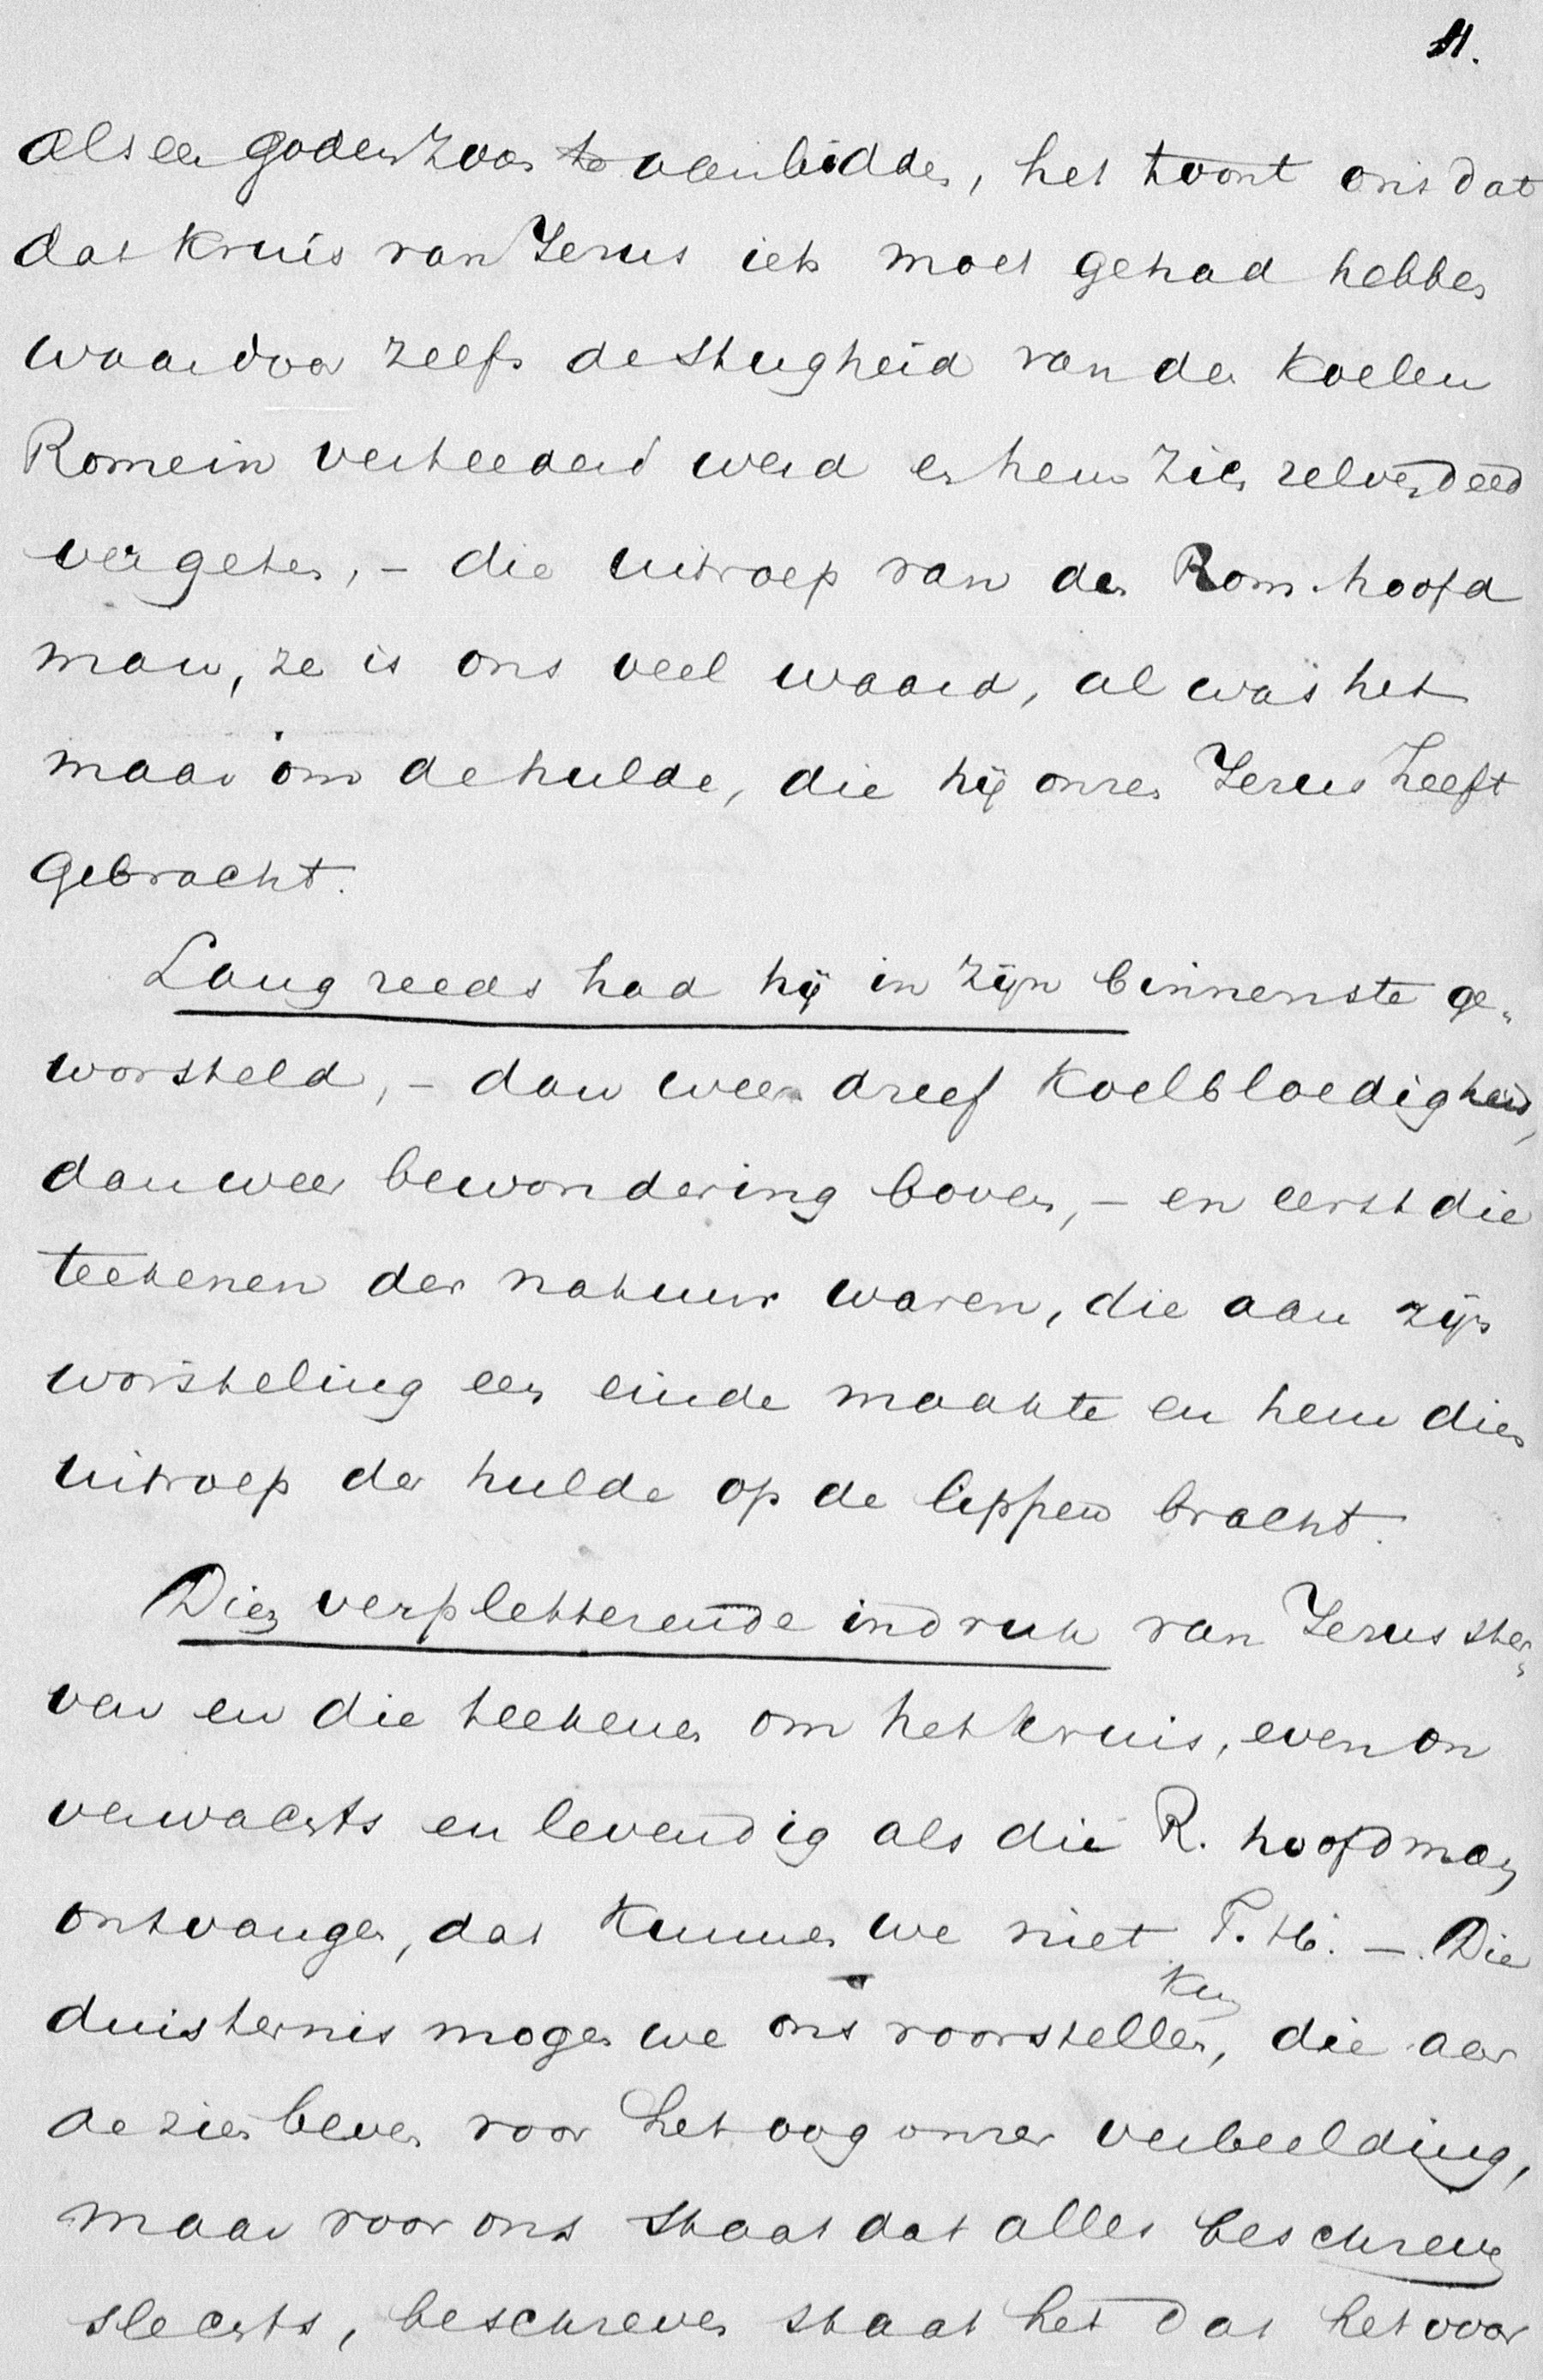 11.
als een godenzoon te aanbidden, het toont ons dat
dat kruis van Jezus iets moet gehad hebben
waardoor zelfs de stugheid van den koelen
Romein verteederd werd en hem zien zelven deed
vergeten, – die uitroep van den Rom. hoofd
man, ze is ons veel waard, al was het
maar om de hulde, die hij onzen Jezus heeft
gebracht.
Lang reeds had hij in zijn binnenste ge„
worsteld, – dan weer dreef koelbloedigheid,
dan weer bewondering boven, – en eerst die
teekenen der natuur waren, die aan zijn
worsteling een einde maakte en hem dien
uitroep der hulde op de lippen bracht.
Dien verpletterende indruk van Jezus ster„
ven en die teekenen om het kruis, even on
verwachts en levendig als die R. hoofdman
ontvangen, dat kunnen we niet T. H. –. Die
duisternis mogen we ons voorstellen, die aar
de zien beven voor het oog onzer verbeelding,
maar voor ons staat dat alles beschreven
slechts, beschreven staat het dat het voor